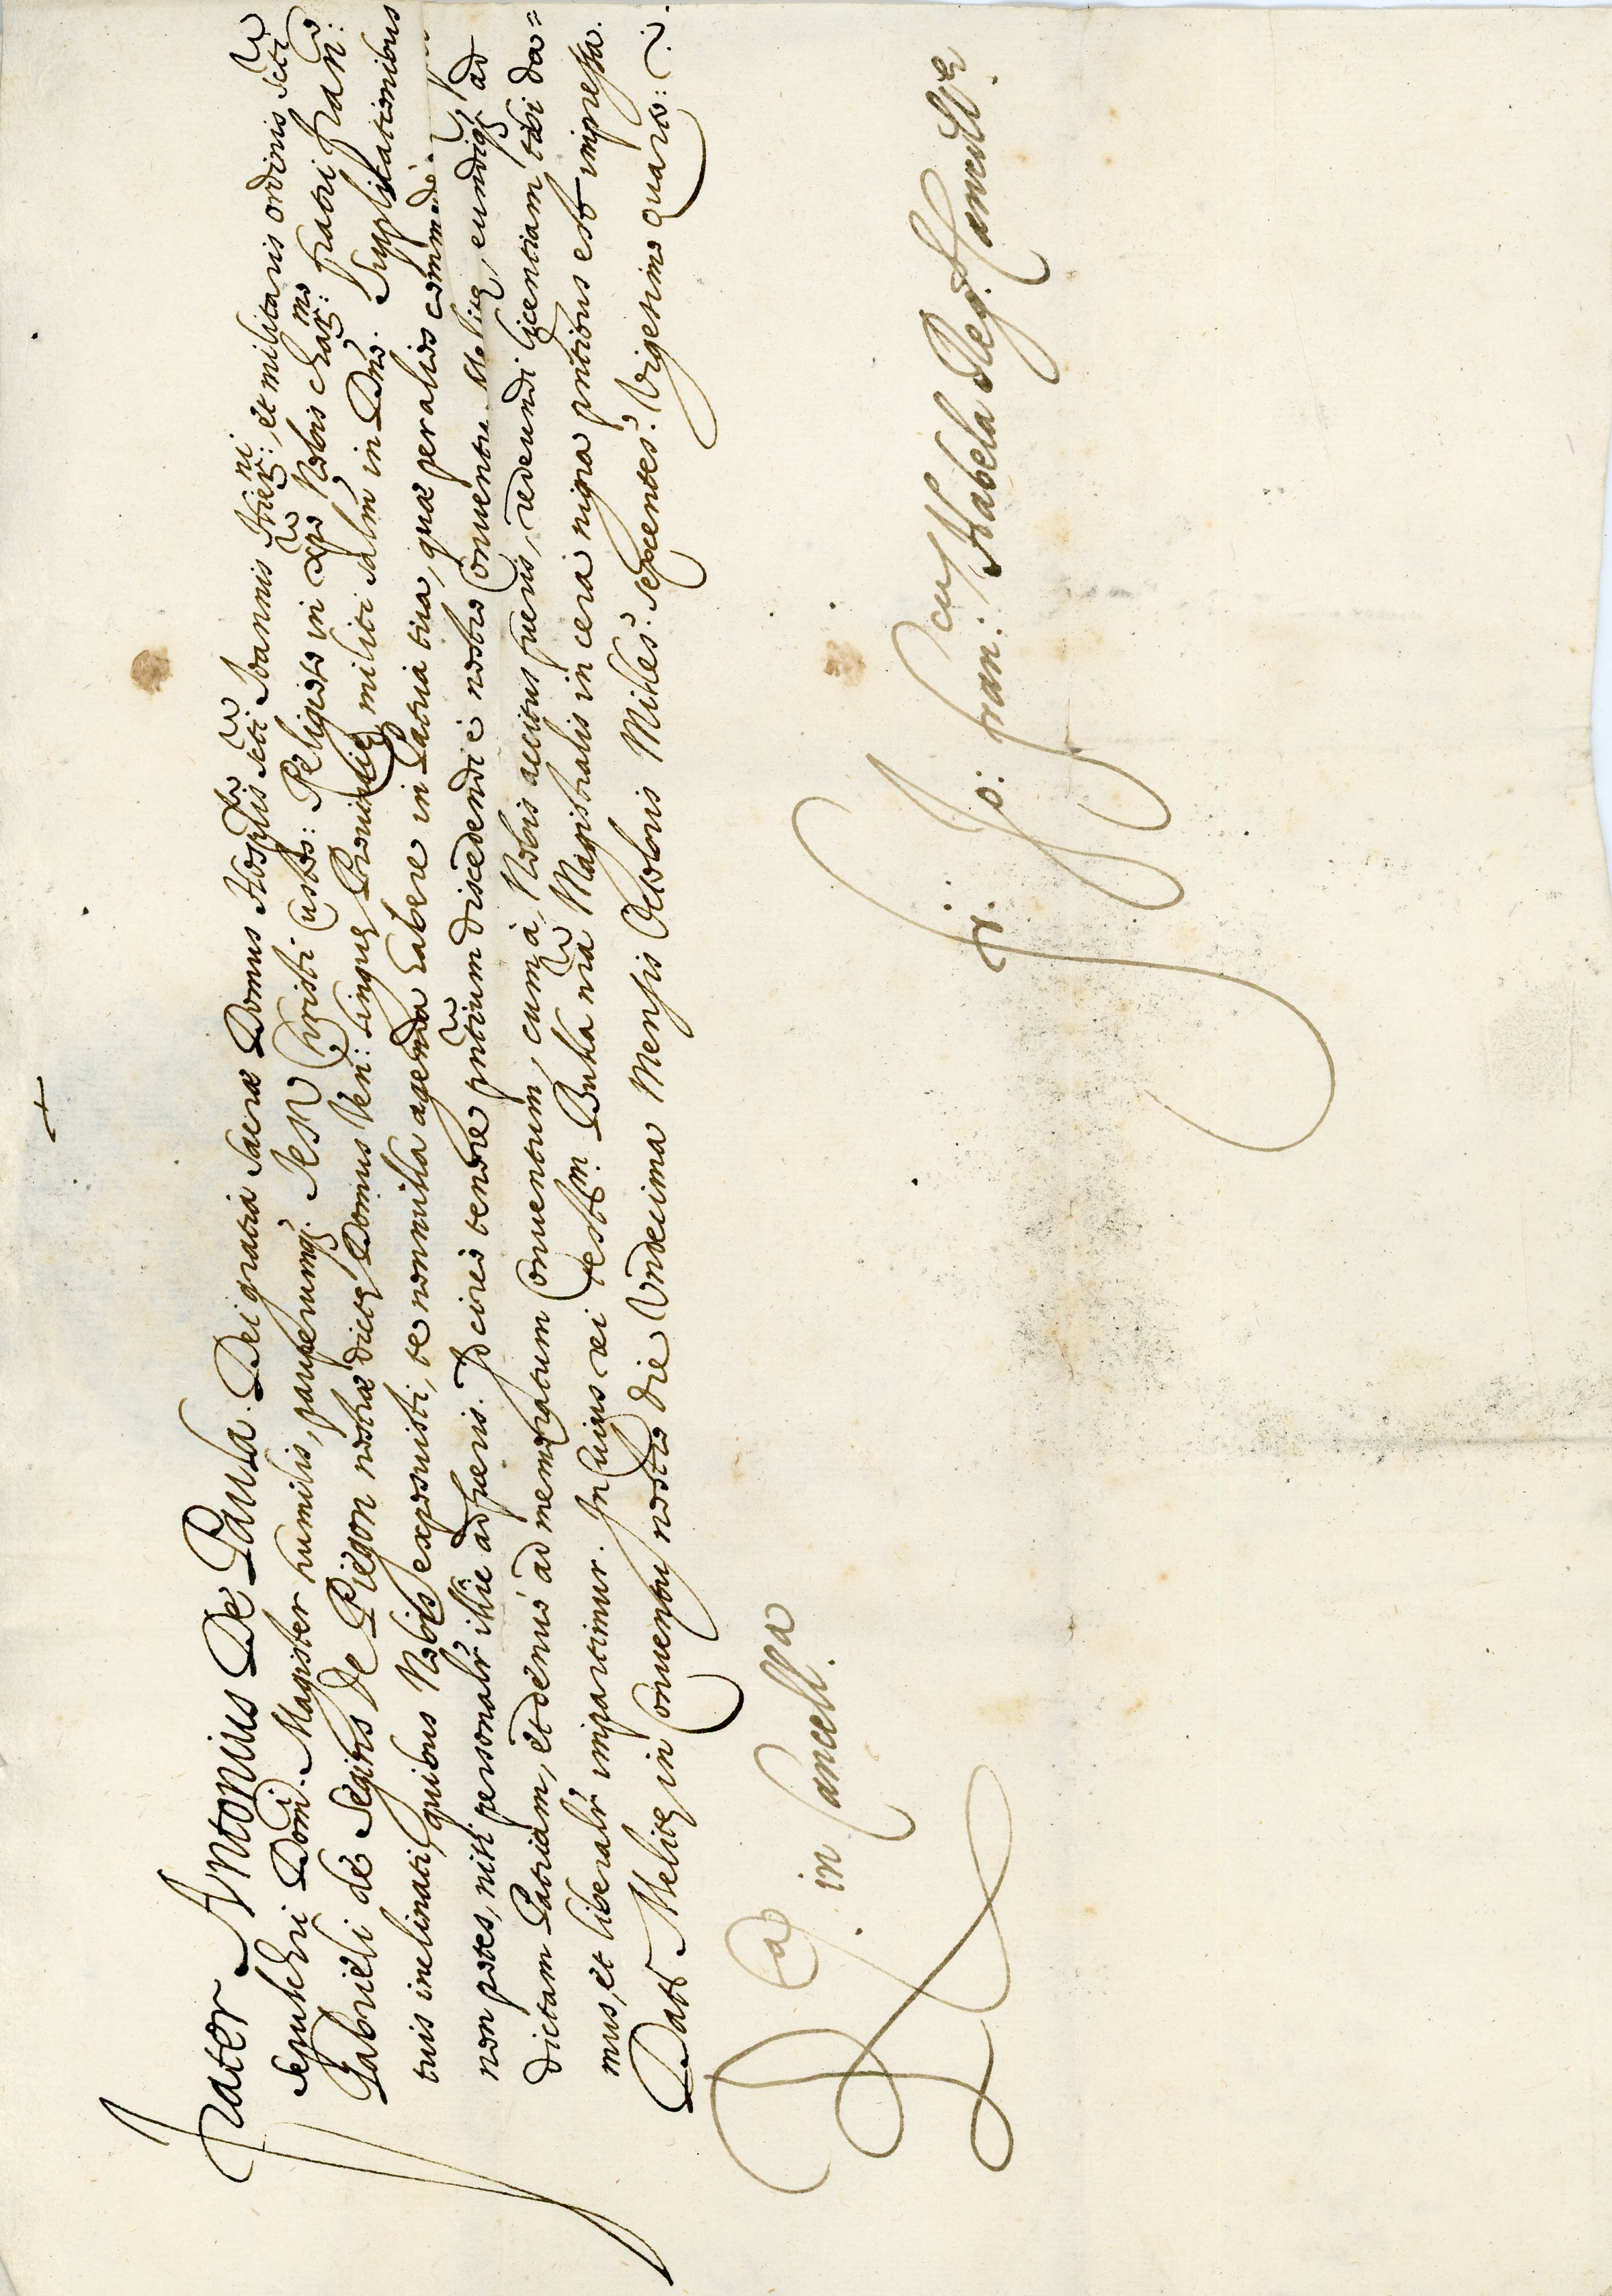 +
Frater Antonius De Paula. Dei gratia Sacræ Domus Hosplis Scti Joannis Hier:ni, et militaris ordinis Scti
Sepulchri Domi. Magister humilis, pauperumq; JESU Christi Custos: Religioso in Xpo Nobis char:mo fratri fran:
Gabrieli de Segins de Piegon nostræ dictæ Domus Ven: linguæ Provinciæ militi salm in Dno. Supplicationibus
tuis inclinati, quibus Nobis exposuisti, te nonnulla agenda habere in Patria tua, quæ per alios commodè
non potes, nisi personalr illic adfueris. Idcirco tenore pntium discedendi è nostro Conventu Melitæ, eundiq; ad
dictam Patriam, et denuò ad memoratum Conventum, cum à Nobis accitus fueris, redeundi licentiam tibi da=
mus, et liberalr impartimur. In cuius rei testim. Bulla nra Magistralis in cera nigra pntibus est impressa.
Datt Melitæ in Conventu nostro die Undecima Mensis Octobris Milles.º sexcentes.º Vigesimo quarto: ~
Rta in Cancellª
fr. Jo: fran:cus Habela Reg. Cancellæ